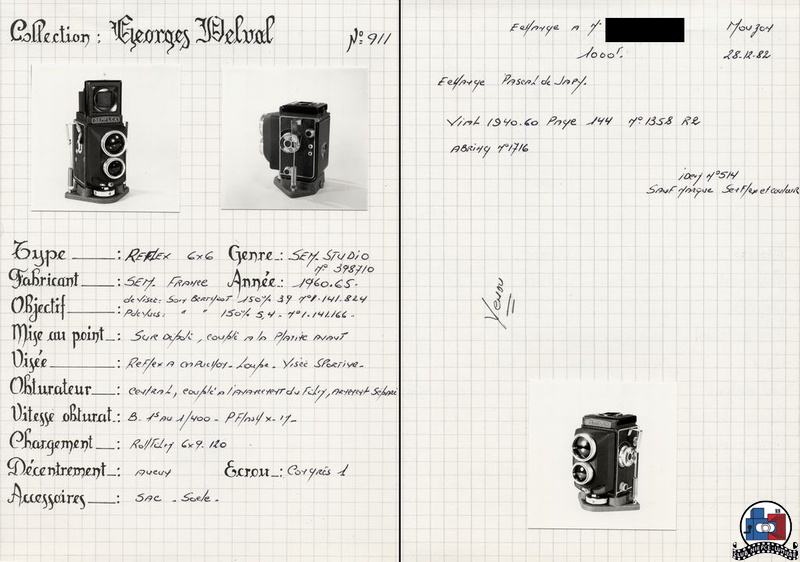 Collection : Georges Delval
N° 911
Type : REFLEX 6x6 Genre : SEM. STUDIO
n° 398710
Fabricant : SEM. FRANCE Année : 1960.65.
Objectif : de visée: Som Berthiot 150% 39 n° 1.141.824
" " 150% 5,4 - n° 1.141.166 -
Mise au point : SUR Depoli, couplé a la Platine avant
Visée : Reflex A capuchon - Loupe. Visée Sportive -
Obturateur : central, couplé a l'avancement du Film, armement Séparé
Vitesse obturat. : B. 1s Au 1/400 - P Flash x - M -
Chargement : RollFilm 6x9. 120
Décentrement : Aucun Ecrou : Congrès 1
Accessoires : SAC - Socle -
Echange A M.
Mouzon
1000F.
28.12.82
Echange Pascal de Jary.
Vial 1940.60 Page 144 n° 1358 R2
ABRING n° 1716
idem n° 514
Sauf marque Semflex et couleur
Vendu